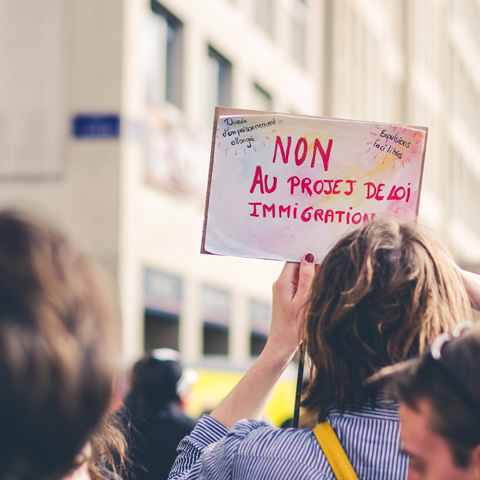 Durée
d'emprisonnement
allongée
Expulsions
facilités
NON
AU PROJET DE LOI
IMMIGRATION